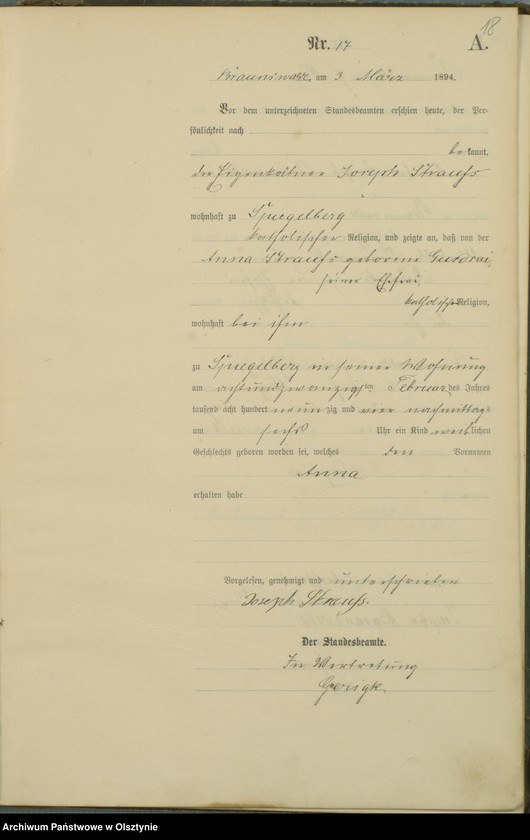 18
Nr. 17 A.
Braunswalde, am 3 März 1894.
Vor dem unterzeichneten Standesbeamten erschien heute, der Per-
sönlichkeit nach
be kannt,
der Eigenkäthner Joseph Strauß
wohnhaft zu Spiegelberg
katholischer Religion, und zeigte an, daß von der
Anna Strauß geborene
seiner Ehefrau,
katholischer Religion,
wohnhaft bei ihm
zu Spiegelberg in seiner Wohnung
am achtundzwanzigsten Februar des Jahres
tausend acht hundert neun zig und vier nachmittags
um sechs Uhr ein Kind weiblichen
Geschlechts geboren worden sei, welches den Vornamen
Anna
erhalten habe
Vorgelesen, genehmigt und unterschrieben
Joseph Strauß.
Der Standesbeamte.
In Vertretung
Gerigk.
Archiwum Państwowe w Olsztynie